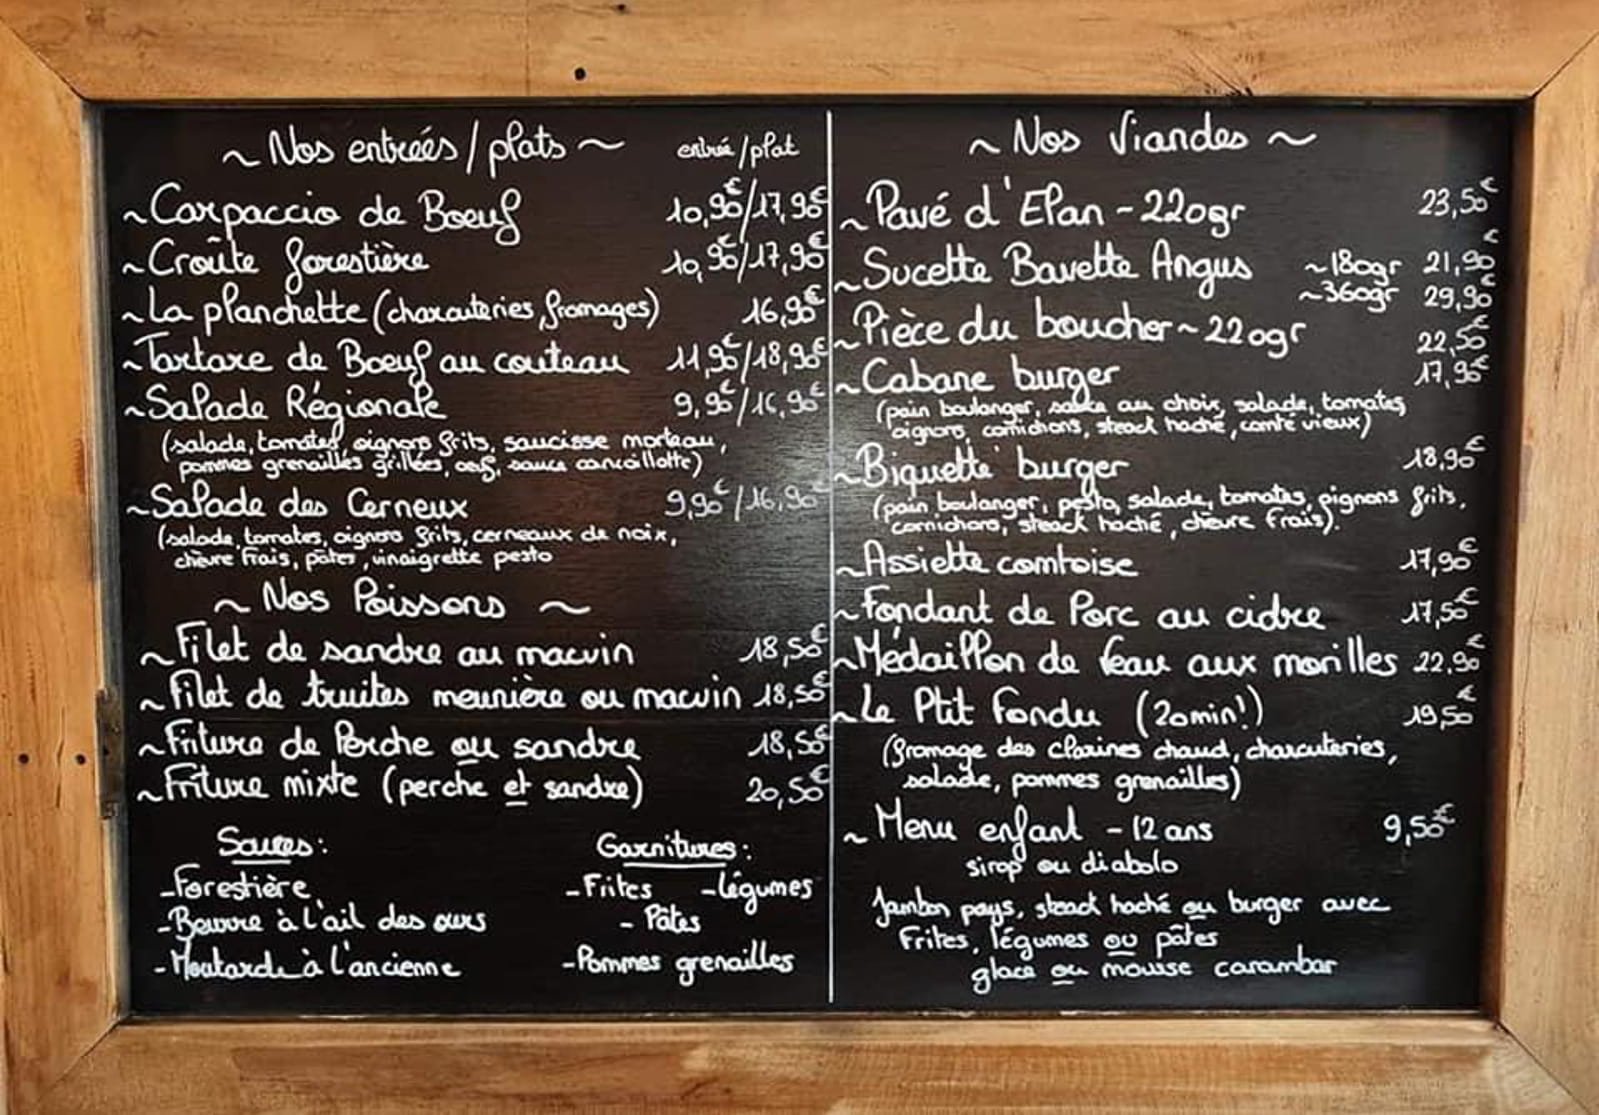 ~ Nos entrées/plats ~ entrée/plat
~ Carpaccio de Boeuf 10,90€/17,90€
~ Croûte forestière 10,90€/17,90€
~ La planchette (charcuteries, fromages) 16,90€
~ Tartare de Boeuf au couteau 11,90€/18,90€
~ Salade Régionale 9,90€/16,90€
(salade, tomates, oignons frits, saucisse morteau,
pommes grenailles grillées, oeuf, sauce cancoillotte)
~ Salade des Cerneux 9,90€/16,90€
(salade, tomates, oignons frits, cerneaux de noix,
chèvre frais, pâtes, vinaigrette pesto
~ Nos Poissons ~
~ Filet de sandre au macvin 18,50€
~ Filet de truites meunière ou macvin 18,50€
~ Friture de Perche ou sandre 18,50€
~ Friture mixte (perche et sandre) 20,50€
Sauces:
- Forestière
- Beurre à l'ail des ours
- Moutarde à l'ancienne
Garnitures:
- Frites - légumes
- Pâtes
- Pommes grenailles
~ Nos Viandes ~
~ Pavé d'Elan - 220gr 23,50€
~ Sucette Bavette Angus ~180gr 21,90€
~360gr 29,90€
~ Pièce du boucher ~ 220gr 22,50€
~ Cabane burger 17,90€
(pain boulanger, sauce au choix, salade, tomates,
oignons, cornichons, steack haché, comté vieux)
~ Biquette burger 18,90€
(pain boulanger, pesto, salade, tomates, oignons frits,
cornichons, steack haché, chèvre frais).
~ Assiette comtoise 17,90€
~ Fondant de Porc au cidre 17,50€
~ Médaillon de Veau aux morilles 22,90€
~ Le Ptit Fondu (20min!) 19,50€
(fromage des clarines chaud, charcuteries,
salade, pommes grenailles)
~ Menu enfant - 12 ans 9,50€
sirop ou diabolo
Jambon pays, steack haché ou burger avec
Frites, légumes ou pâtes
glace ou mousse carambar